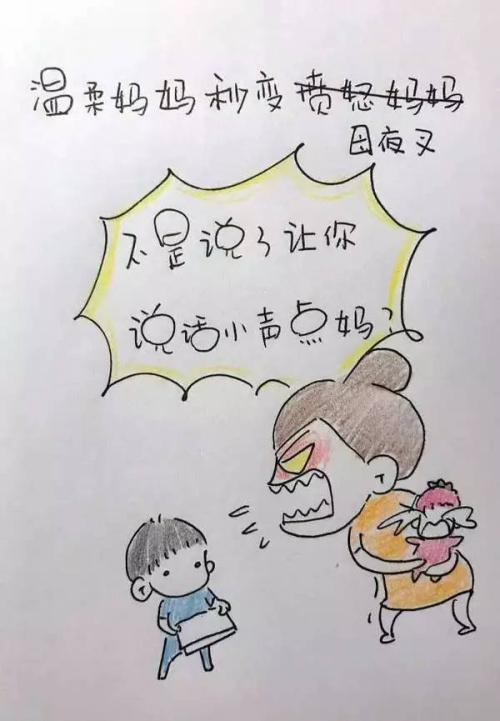 温柔妈妈秒变愤怒妈妈
母夜叉
不是说了让你
说话小声点妈?